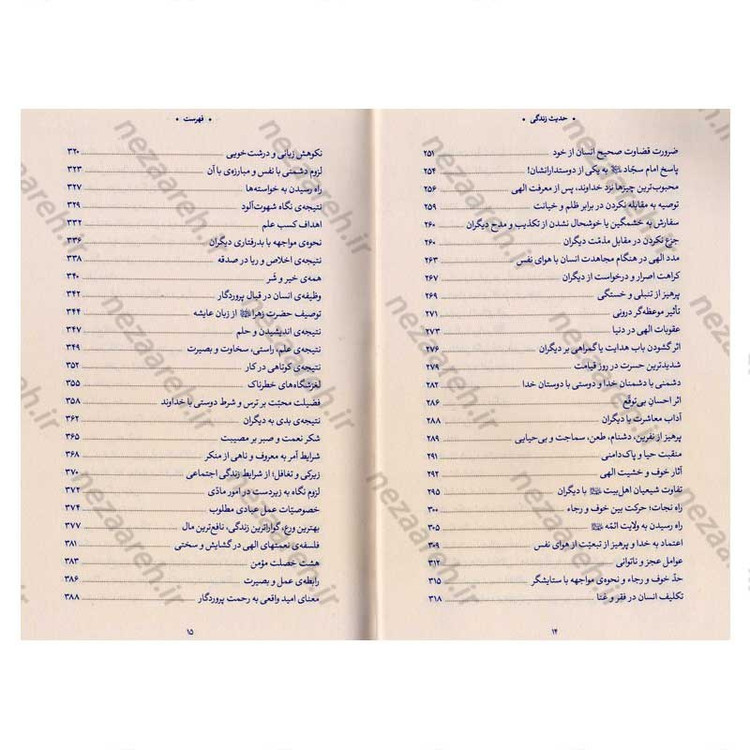 • حدیث زندگی •
ضرورت قضاوت صحیح انسان از خود ۲۵۱
پاسخ امام سجّاد ﷺ به یکی از دوستدارانشان! ۲۵۴
محبوب‌ترین چیزها نزد خداوند، پس از معرفت الهی ۲۵۶
توصیه به مقابله نکردن در برابر ظلم و خیانت ۲۵۹
سفارش به خشمگین یا خوشحال نشدن از تکذیب و مدح دیگران ۲۶۰
جزع نکردن در مقابل مذمّت دیگران ۲۶۰
مدد الهی در هنگام مجاهدت انسان با هوای نفس ۲۶۳
کراهت اصرار و درخواست از دیگران ۲۶۷
پرهیز از تنبلی و خستگی ۲۶۹
تأثیر موعظه‌گر درونی ۲۷۱
عقوبات الهی در دنیا ۲۷۳
اثر گشودن باب هدایت یا گمراهی بر دیگران ۲۷۶
شدیدترین حسرت در روز قیامت ۲۷۹
دشمنی با دشمنان خدا و دوستی با دوستان خدا ۲۸۲
اثر احسانِ بی‌توقّع ۲۸۶
آداب معاشرت با دیگران ۲۸۸
پرهیز از نفرین، دشنام، طعن، سماجت و بی‌حیایی ۲۸۹
منقبت حیا و پاک‌دامنی ۲۹۱
آثار خوف و خشیت الهی ۲۹۲
تفاوت شیعیان اهل‌بیت با دیگران ۲۹۵
راه نجات؛ حرکت بین خوف و رجاء ۳۰۰
راه رسیدن به ولایت ائمّه ۳۰۵
اعتماد به خدا و پرهیز از تبعیّت از هوای نفس ۳۰۹
عوامل عجز و ناتوانی ۳۱۲
حدّ خوف و رجاء و نحوه‌ی مواجهه با ستایشگر ۳۱۵
تکلیف انسان در فقر و غنا ۳۱۸
۱۴
• فهرست •
نکوهش زبانی و درشت‌خویی ۳۲۰
لزوم دشمنی با نفس و مبارزه‌ی با آن ۳۲۳
راه رسیدن به خواسته‌ها ۳۲۷
نتیجه‌ی نگاه شهوت‌آلود ۳۲۹
اهداف کسب علم ۳۳۲
نحوه‌ی مواجهه با بدرفتاری دیگران ۳۳۶
نتیجه‌ی اخلاص و ریا در صدقه ۳۳۸
همه‌ی خیر و شر ۳۴۰
وظیفه‌ی انسان در قبال پروردگار ۳۴۲
توصیف حضرت زهرا از زبان عایشه ۳۴۴
نتیجه‌ی اندیشیدن و حلم ۳۴۷
نتیجه‌ی علم، راستی، سخاوت و بصیرت ۳۴۹
نتیجه‌ی کوتاهی در کار ۳۵۲
لغزشگاه‌های خطرناک ۳۵۵
فضیلت محبّت بر ترس و شرط دوستی با خداوند ۳۵۸
نتیجه‌ی بدی به دیگران ۳۶۲
شکر نعمت و صبر بر مصیبت ۳۶۵
شرایط آمر به معروف و ناهی از منکر ۳۶۸
زیرکی و تغافل؛ از شرایط زندگی اجتماعی ۳۷۰
لزوم نگاه به زیردست در امور مادّی ۳۷۲
خصوصیّات عمل عبادی مطلوب ۳۷۴
بهترین ورع، گواراترین زندگی، نافع‌ترین مال ۳۷۷
فلسفه‌ی نعمتهای الهی در گشایش و سختی ۳۸۱
هشت خصلت مؤمن ۳۸۳
رابطه‌ی عمل و بصیرت ۳۸۶
معنای امید واقعی به رحمت پروردگار ۳۸۸
۱۵
nezaareh.ir